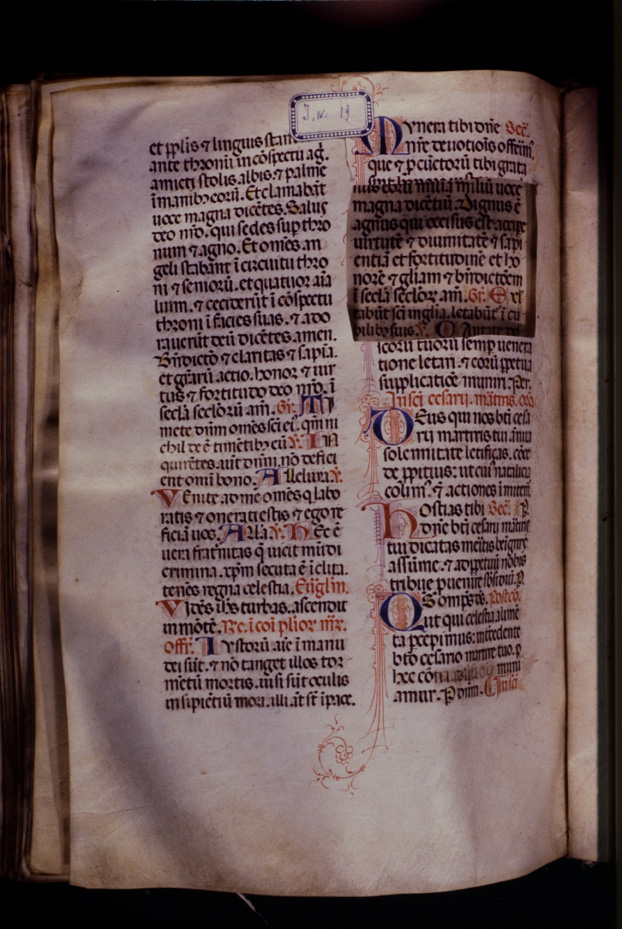 J. N. 19
et pplis ⁊ linguis stan
ante thronū in cōspectu ag.
amicti stolis albis ⁊ palme
ī manib, eorū. Et clamabāt
uoce magna dicētes. Salus
deo nr̄o. qui sedes sup thro
num ⁊ agno. Et omēs an
geli stabānt ī circuitu thro
ni ⁊ seniorū. et quatuor aīa
lium. ⁊ ceciderūt ī cōspectu
throni ī facies suas. ⁊ ado
rauerūt deū dicētes. amen.
Bn̄dictō ⁊ claritas ⁊ sapīa.
et gr̄arū actio. honor ⁊ uir
tus ⁊ fortitudo deo nr̄o. ī
secl̄a secl̄orū am̄. Gr. Ti
mete dn̄m om̄es sc̄i ei. qm̄ ni
chil de ē timētib, eū. V. In
quirētes aut dn̄m. nō defici
ent omī bono. Alleluya. V.
Venite ad me om̄es q labo
ratis ⁊ onerati estis. ⁊ ego re
ficiā uos. All̄a. V. Hec ē
uera frat̄nitas q̄ uicit mūdi
crimina. xp̄m secuta ē īclita.
tenēs regna celestia. Eūgl̄m.
Vidēs ih̄s turbas. ascendit
in mōtē. Re. ī cōi plior mr̄.
offr̄. Iustorū aīe ī manu
dei sūt. ⁊ nō tanget illos tor
mētū mortis. uisi sūt oculis
insipiētiū mori. illi āt st̄ ī pace.
Munera tibi dn̄e Sec̄.
nr̄e deuotiōis offerim,
que ⁊ p cūctorū tibi grata
magna dicētiū. Dignus ē
agnus qui occisus est. accipe
uirtutē ⁊ diuinitatē ⁊ sapi
entiā et fortitudinē et ho
norē ⁊ gl̄iam ⁊ bn̄dictōem
ī secl̄a secl̄orʒ am̄. Gr. Exl
tabūt sc̄i in gl̄ia. letabūt ī cu
bilib, suis. V. Cantate
icorū tuorū semp uenera
tione letari. ⁊ eorū ppetua
supplicatiōe muniri. Per.
In sc̄i cesarij. mātiris. oro
Deus qui nos bt̄i cesa
rij martiris tui ānua
solemnitate letificas. cōce
de ppitius: ut cui, natalicia
colim,. ⁊ actiones imitem,
Hostias tibi Sec̄.
dn̄e bt̄i cesarij mātiris
tui dicatas mēitis benigne
assume. ⁊ ad ppetuū nobis
tribue puenire subsidiū. P.
Qs om̄ps ds. Postcō.
Ut qui celestia alimē
ta pcepimus: intercedente
bt̄o cesario martire tuo. p
hec cōt muni
amur. P dn̄m. In sc̄i